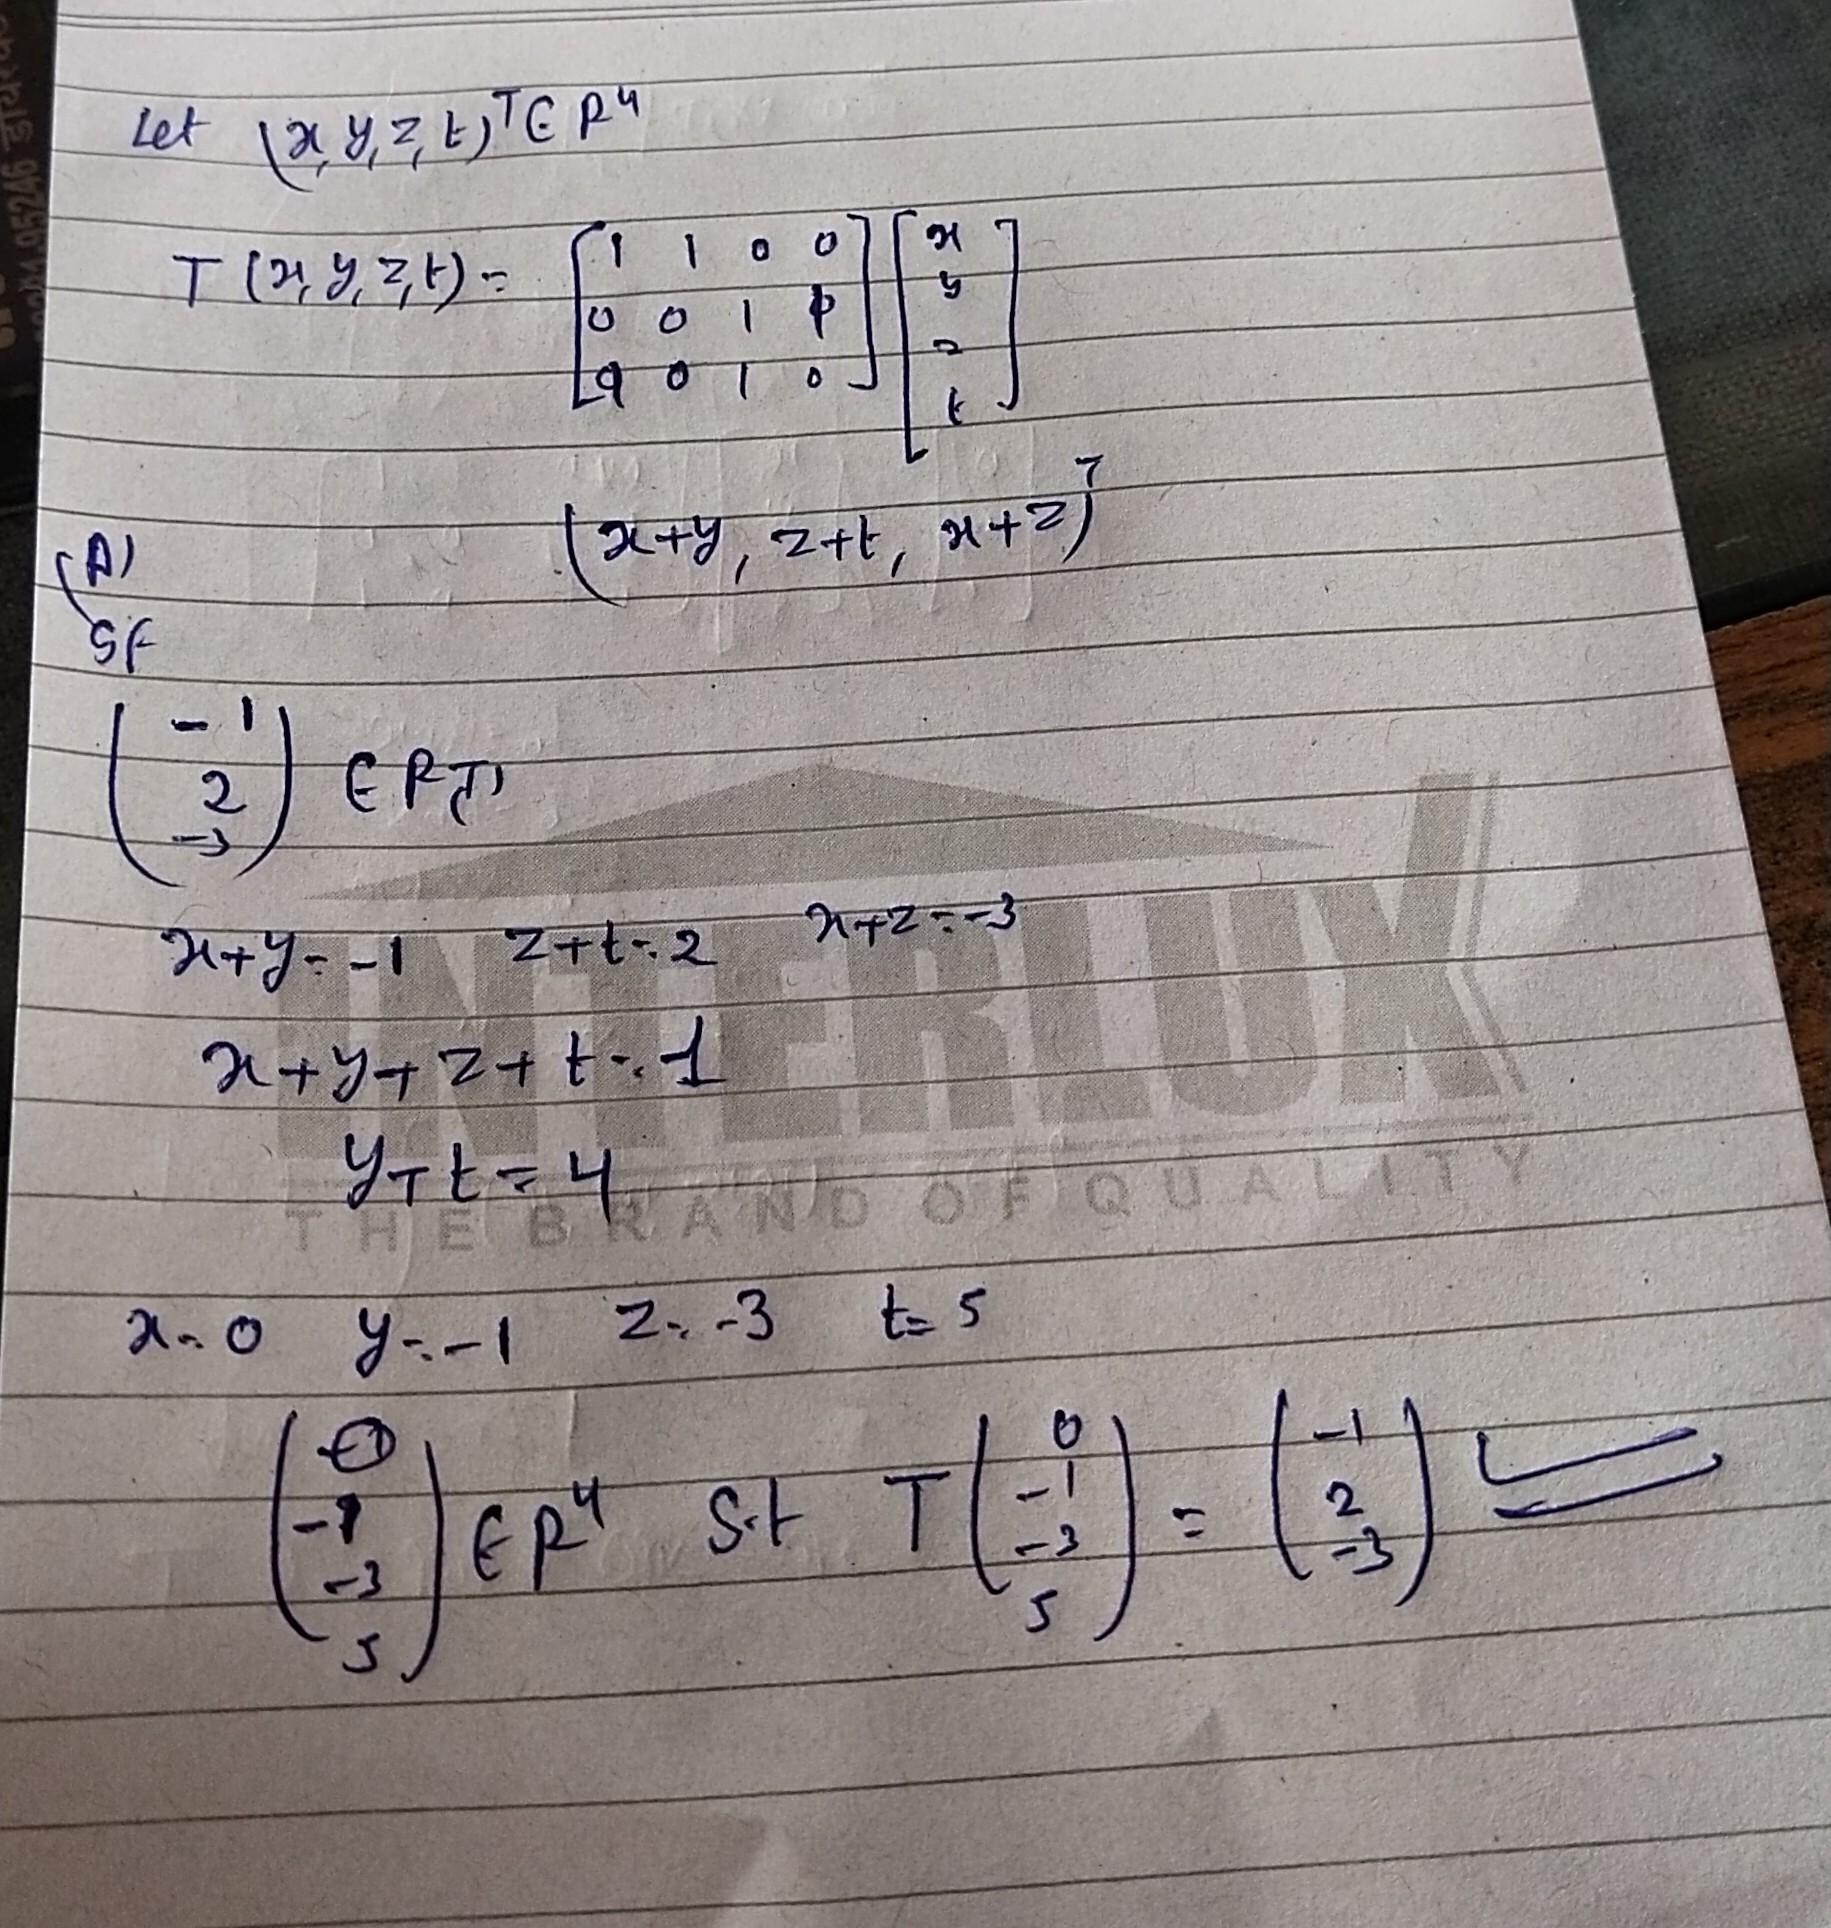 Let (x, y, z, t)ᵀ ∈ R⁴
T(x, y, z, t) = [1 1 0 0] [x]
[0 0 1 1] [y]
[1 0 1 0] [z]
[t]
(x+y, z+t, x+z)ᵀ
(A)
If
(-1
2
-3) ∈ R(T)
x+y = -1 z+t = 2 x+z = -3
x+y+z+t = 1
y+t = 4
x = 0 y = -1 z = -3 t = 5
(0 -1 -3 5) ∈ R⁴ S.t T(0 -1 -3 5) = (-1 2 -3)
INTERLUX
THE BRAND OF QUALITY
95246